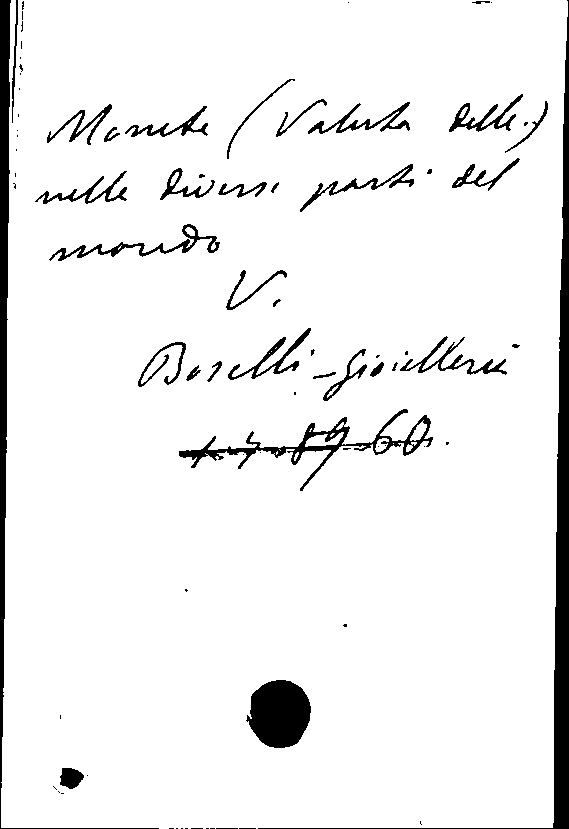 Monete (Valuta delle.)
nelle diverse parti del
mondo
V.
Boselli - Gioielleria